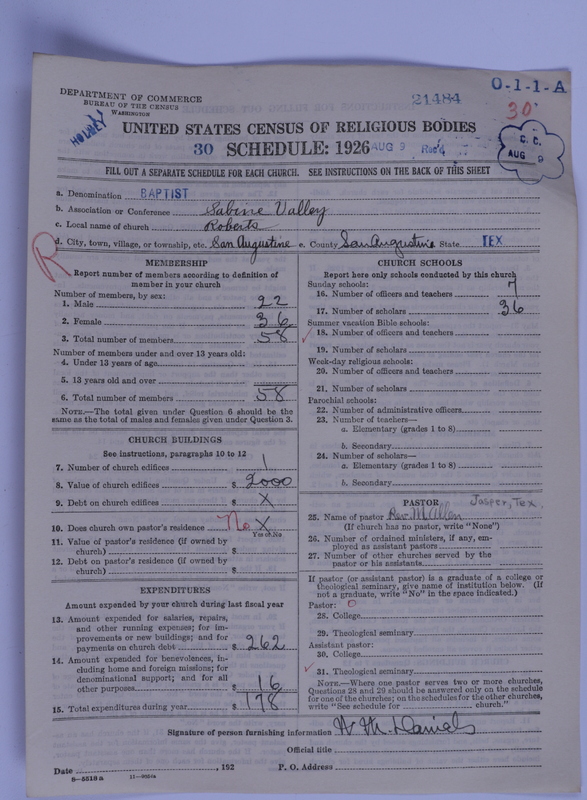 DEPARTMENT OF COMMERCE
BUREAU OF THE CENSUS
WASHINGTON
21484
O-1-1-A
30
C. C.
AUG 9
UNITED STATES CENSUS OF RELIGIOUS BODIES
30 SCHEDULE: 1926 AUG 9 Rec'd
FILL OUT A SEPARATE SCHEDULE FOR EACH CHURCH. SEE INSTRUCTIONS ON THE BACK OF THIS SHEET
a. Denomination BAPTIST
b. Association or Conference Sabine Valley
c. Local name of church Roberts
d. City, town, village, or township, etc. San Augustine e. County San Augustine State TEX
R
MEMBERSHIP
Report number of members according to definition of
member in your church
Number of members, by sex:
1. Male 22
2. Female 36
3. Total number of members 58
Number of members under and over 13 years old:
4. Under 13 years of age
5. 13 years old and over
6. Total number of members 58
NOTE.—The total given under Question 6 should be the
same as the total of males and females given under Question 3.
CHURCH BUILDINGS
See instructions, paragraphs 10 to 12
7. Number of church edifices 1
8. Value of church edifices $ 2000
9. Debt on church edifices $ X
10. Does church own pastor's residence No X
Yes or No
11. Value of pastor's residence (if owned by
church) $
12. Debt on pastor's residence (if owned by
church) $
EXPENDITURES
Amount expended by your church during last fiscal year
13. Amount expended for salaries, repairs,
and other running expenses; for im-
provements or new buildings; and for
payments on church debt $ 262
14. Amount expended for benevolences, in-
cluding home and foreign missions; for
denominational support; and for all
other purposes $ 16
15. Total expenditures during year $ 178
CHURCH SCHOOLS
Report here only schools conducted by this church
Sunday schools:
16. Number of officers and teachers 7
17. Number of scholars 36
Summer vacation Bible schools:
18. Number of officers and teachers
19. Number of scholars
Week-day religious schools:
20. Number of officers and teachers
21. Number of scholars
Parochial schools:
22. Number of administrative officers
23. Number of teachers—
a. Elementary (grades 1 to 8)
b. Secondary
24. Number of scholars—
a. Elementary (grades 1 to 8)
b. Secondary
PASTOR Jasper, Tex.
25. Name of pastor Rev. M. Allen
(If church has no pastor, write "None")
26. Number of ordained ministers, if any, em-
ployed as assistant pastors
27. Number of other churches served by the
pastor or his assistants
If pastor (or assistant pastor) is a graduate of a college or
theological seminary, give name of institution below. (If
not a graduate, write "No" in the space indicated.)
Pastor: O
28. College
29. Theological seminary
Assistant pastor:
30. College
31. Theological seminary
NOTE.—Where one pastor serves two or more churches,
Questions 28 and 29 should be answered only on the schedule
for one of the churches; on the schedules for the other churches,
write "See schedule for church."
Signature of person furnishing information W. M. Daniels
Official title
Date , 192 P. O. Address
8-5518a 11-9554